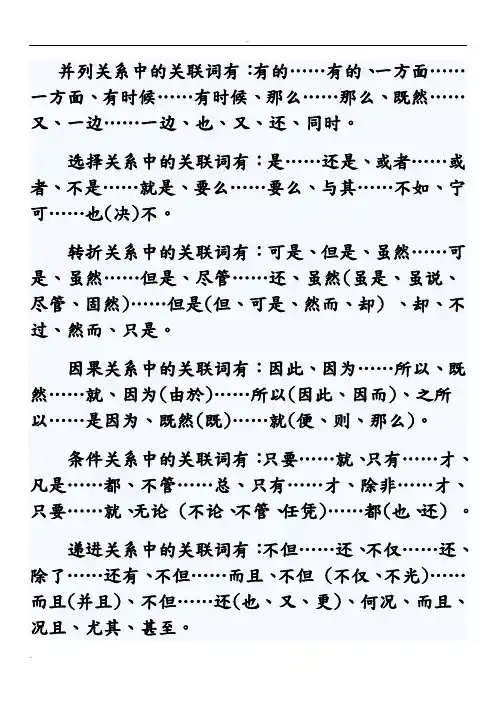 并列关系中的关联词有：有的……有的、一方面……
一方面、有时候……有时候、那么……那么、既然……
又、一边……一边、也、又、还、同时。
选择关系中的关联词有：是……还是、或者……或
者、不是……就是、要么……要么、与其……不如、宁
可……也(决)不。
转折关系中的关联词有：可是、但是、虽然……可
是、虽然……但是、尽管……还、虽然(虽是、虽说、
尽管、固然)……但是(但、可是、然而、却）、却、不
过、然而、只是。
因果关系中的关联词有：因此、因为……所以、既
然……就、因为(由於)……所以(因此、因而)、之所
以……是因为、既然(既)……就(便、则、那么)。
条件关系中的关联词有：只要……就、只有……才、
凡是……都、不管……总、只有……才、除非……才、
只要……就、无论（不论、不管、任凭)……都(也、还）。
递进关系中的关联词有：不但……还、不仅……还、
除了……还有、不但……而且、不但（不仅、不光)……
而且(并且)、不但……还(也、又、更)、何况、而且、
况且、尤其、甚至。